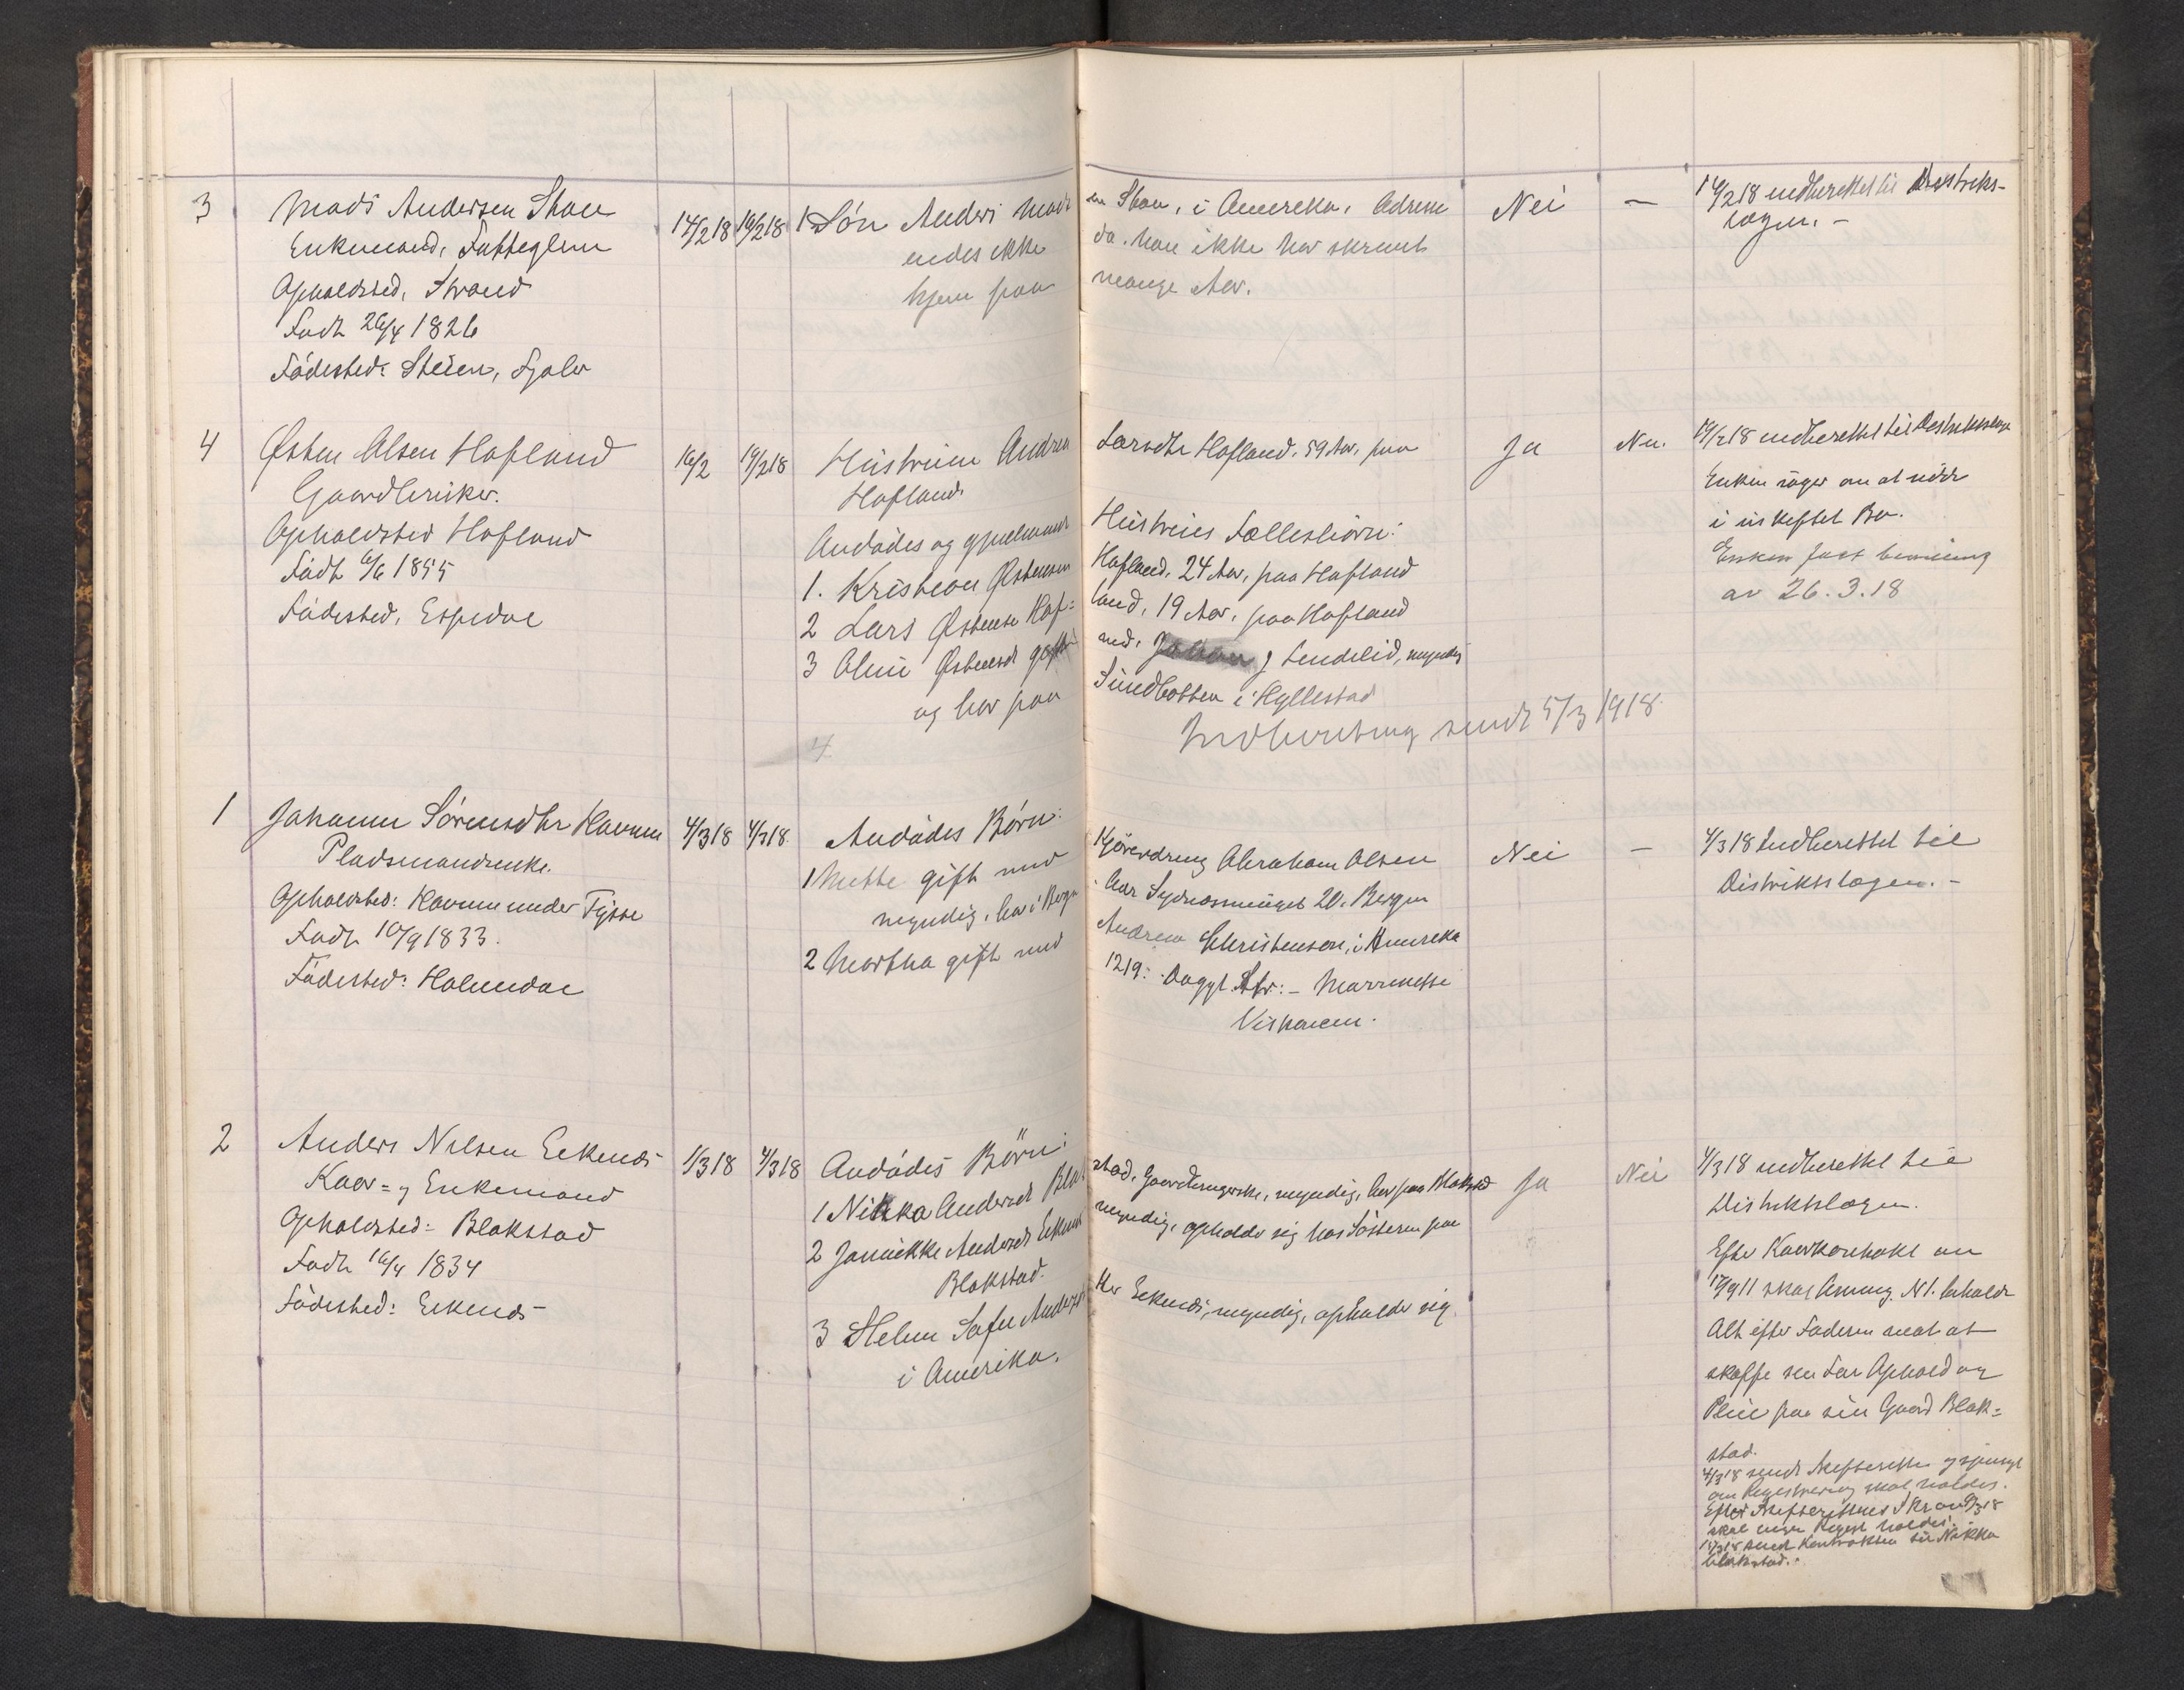 3 Mads Andersen Skaa 14/2 18 14/2 18 1 Søn Anders Mads en Skaa, i Amerika, Adresse Nei — 14/2 18 indberettet til Distrikts-
Enkemand, Fattiglem endes ikke da han ikke har skrevet lægen. –
Opholdssted, Strand hjem paa mange Aar.
Født 26/4 1826
Fødested: Steien, Fjaler
4 Østen Olsen Hafland 16/2 19/2 18 Hustruen Andrea Larsdtr Hafland, 59 Aar, paa Ja Nei. 19/2 18 indberettet til Distriktslæge
Gaardbruker. Hafland. Enken søger om at sidde
Opholdssted Hafland Avdødes og gjenlevende Hustrues Fællesbørn: i uskiftet Bo.
Født 6/6 1855 1. Kristian Østensen Hafland, 24 Aar, paa Hafland Enken faat bevilling
Fødested, Espedal 2 Lars Østensen Haf= land, 19 Aar, paa Hafland av 26.3.18
3 Oline Østensdt gift med, J Lendelid, myndig
og bor paa Sundbotten i Hyllestad
4 Indberetning sendt 5/3 1918.
1 Johanne Sørensdtr Havnen 4/3 18 4/3 18. Avdødes Børn: Nei — 4/3 18 Indberettet til
Pladsmandsenke. 1 Mette gift med Kjørerdreng Abraham Olsen Distriktslægen. –
Opholdssted: Havnen under Tysse myndig, bor i Bergen Adr Sydnessmuget 20. Bergen
Født 10/9 1833. 2 Martha gift med Andrew Christensen, i Amerika
Fødested: Holmedal 1219: Str: – Marinette
Viskonsin.
2 Anders Nilsen Eikenes 1/3 18 4/3 18 Avdødes Børn: Ja Nei 4/3 18 indberettet til
Kaar= og Enkemand 1 Nikka Andersdt Blak stad, Gaardbrugerske, myndig, bor paa Blakstad Distriktslægen.
Opholdssted: Blakstad 2 Jannikke Andersdt Eikenes myndig, opholder sig hos Søsteren paa Efter Kaarkontrakt av
Født 16/4 1834 Blakstad. 17/9 11 skal Arving N 1. beholde
Fødested: Eikenes 3 Helene Sofie Anders dtr Eikenes, myndig, opholder sig Alt efter Faderen mot at
i Amerika. skaffe sin Far Ophold og
Pleie paa sin Gaard Blak=
stad.
4/3 18 sendt Skifteretten og spurgt
om Registrering skal holdes.
Efter Skifterettens Skr av 9/3 18
skal ingen Regist holdes.
sendt Kontrakten til Nikka
Blakstad.